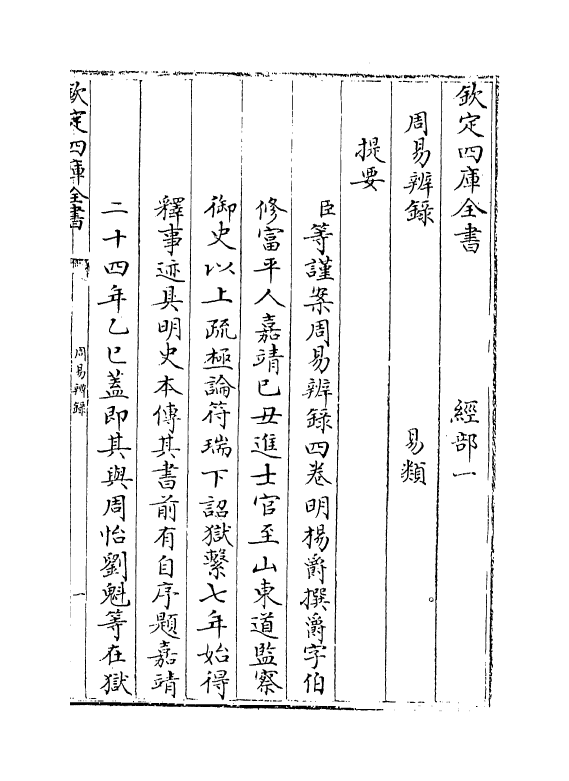 欽定四庫全書　經部一
周易辨録　易類
提要
臣等謹案周易辨録四卷明楊爵撰爵字伯
修富平人嘉靖己丑進士官至山東道監察
御史以上疏極論符瑞下詔獄繫七年始得
釋事迹具明史本傳其書前有自序題嘉靖
二十四年乙巳蓋即其與周怡劉魁等在獄
欽定四庫全書
周易辨録
一